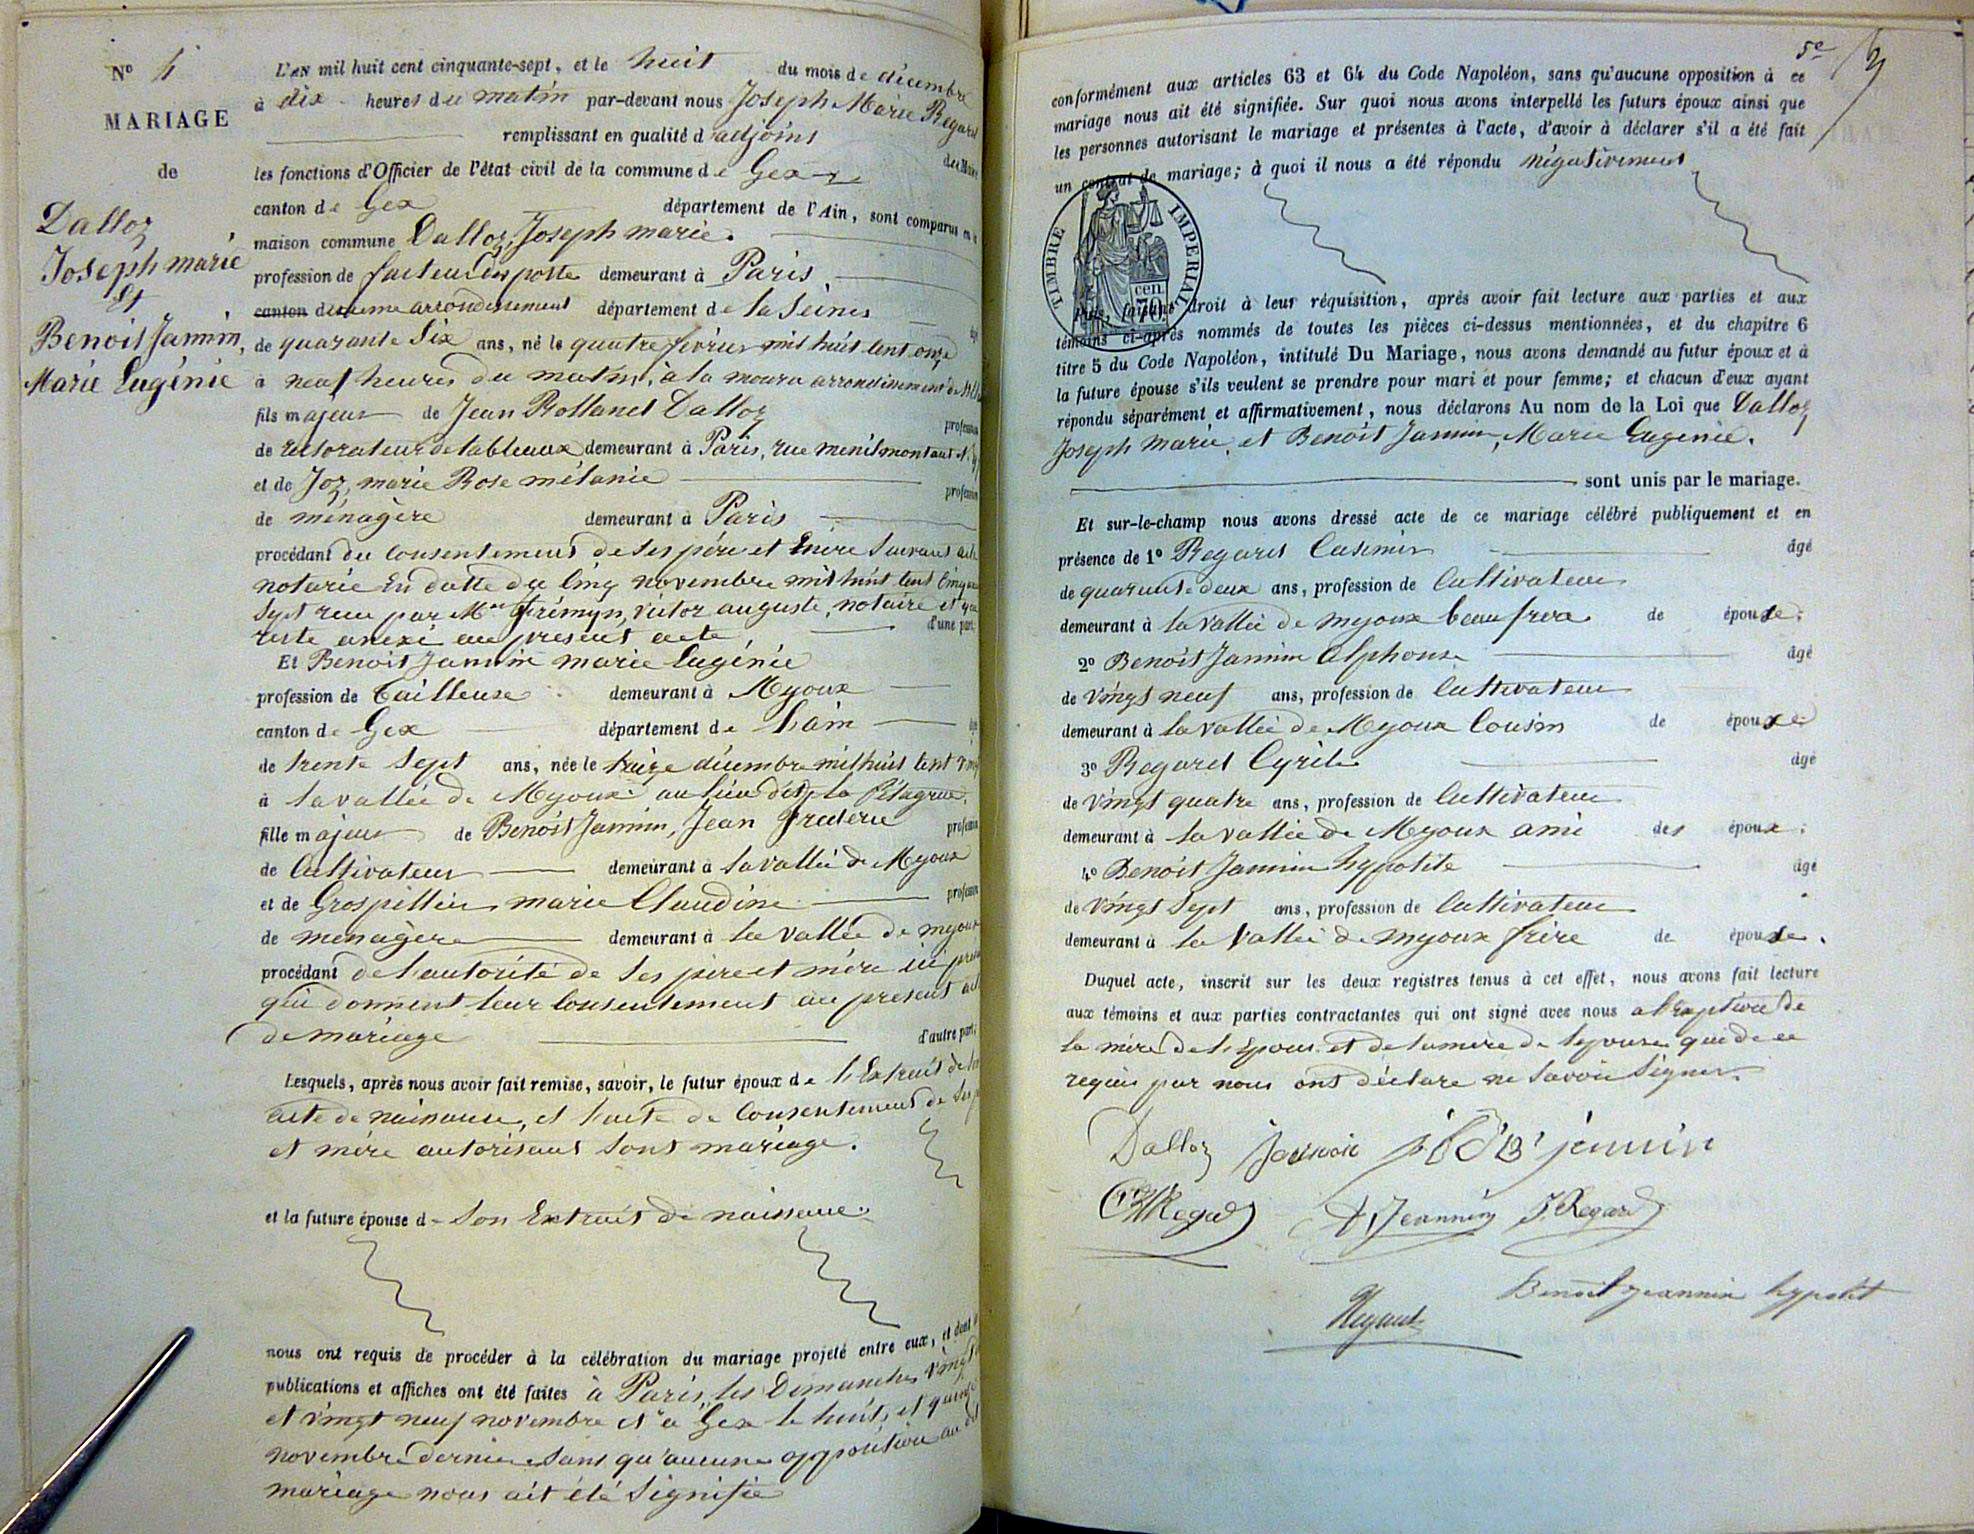 N° 4
MARIAGE
de
Dalloz
Joseph marie
Et
Benoit Jamin,
Marie Eugénie
L'AN mil huit cent cinquante-sept, et le huit du mois de décembre
à dix heures du matin par-devant nous Joseph Marie Regard
remplissant en qualité d'adjoint
les fonctions d'Officier de l'état civil de la commune de Gex
canton de Gex département de l'Ain, sont comparus en
maison commune Dalloz, Joseph marie.
profession de facteur des poste demeurant à Paris
canton arrondissement département de la Seine
de quarante Six ans, né le quatre février mil huit cent onze
à neuf heures du matin, à la moura arrondissement de
fils majeur de Jean Rolland Dalloz profession
de restorateur de tableaux demeurant à Paris, rue menilmontant
et de Joz, marie Rose mélanie profession
de ménagère demeurant à Paris
procédant du consentement de ses père et mère suivant acte
notarié en datte du cinq novembre mil huit cent cinquante
Sept reçu par Me Frémyn, victor auguste, notaire et qui
reste anexé au présent acte, d'une part;
Et Benoit Jamin marie Eugénie
profession de tailleuse demeurant à Myoux
canton de Gex département de Lain
de trente Sept ans, née le treize décembre mil huit cent vingt
à la vallée de Myoux au lieu dit la Pélagrue,
fille majeur de Benoit Jamin, Jean Frederic profession
de Cultivateur demeurant à la vallée de Myoux
et de Grospillier marie Claudine profession
de menagère demeurant à la vallée de myoux
procédant de l'autorité de ses père et mère ici présent
qui donnent leur consentement au présent acte
de mariage d'autre part;
Lesquels, après nous avoir fait remise, savoir, le futur époux de l'Extrait de son
acte de naissance, et l'acte de Consentement de ses père
et mère autorisant sont mariage.
et la future épouse de son Extrait de naissance.
nous ont requis de procéder à la célébration du mariage projeté entre eux, et dont les
publications et affiches ont été faites à Paris, les Dimanches vingt
et vingt neuf novembre et à Gex le huit et quinze
novembre dernier sans qu'aucune opposition au dit
mariage nous ait été signifié
5e
conformément aux articles 63 et 64 du Code Napoléon, sans qu'aucune opposition à ce
mariage nous ait été signifiée. Sur quoi nous avons interpellé les futurs époux ainsi que
les personnes autorisant le mariage et présentes à l'acte, d'avoir à déclarer s'il a été fait
un contrat de mariage; à quoi il nous a été répondu négativement
TIMBRE IMPÉRIAL
70 cen.
Puis, faisant droit à leur réquisition, après avoir fait lecture aux parties et aux
témoins ci-après nommés de toutes les pièces ci-dessus mentionnées, et du chapitre 6
titre 5 du Code Napoléon, intitulé Du Mariage, nous avons demandé au futur époux et à
la future épouse s'ils veulent se prendre pour mari et pour femme; et chacun d'eux ayant
répondu séparément et affirmativement, nous déclarons Au nom de la Loi que Dalloz
Joseph marie, et Benoit Jamin, Marie Eugenie.
sont unis par le mariage.
Et sur-le-champ nous avons dressé acte de ce mariage célébré publiquement et en
présence de 1° Regard Casimir âgé
de quarante deux ans, profession de Cultivateur
demeurant à la vallée de myoux beau frère de épouse;
2° Benoit Jamin Alphonse âgé
de vingt neuf ans, profession de Cultivateur
demeurant à la vallée de Myoux Cousin de épouse
3° Regard Cyrile âgé
de vingt quatre ans, profession de Cultivateur
demeurant à la vallée de Myoux ami des époux;
4° Benoit Jamin hypolite âgé
de vingt Sept ans, profession de Cultivateur
demeurant à la vallée de myoux frère de épouse.
Duquel acte, inscrit sur les deux registres tenus à cet effet, nous avons fait lecture
aux témoins et aux parties contractantes qui ont signé avec nous a l'exception de
la mère de l'Epoux et de la mère de l'epouse qui de ce
requis par nous ont déclaré ne savoir signer.
Dalloz
jennin
Regad
Jeannin
J. Regard
Benoit jeannin hypolit
Regard